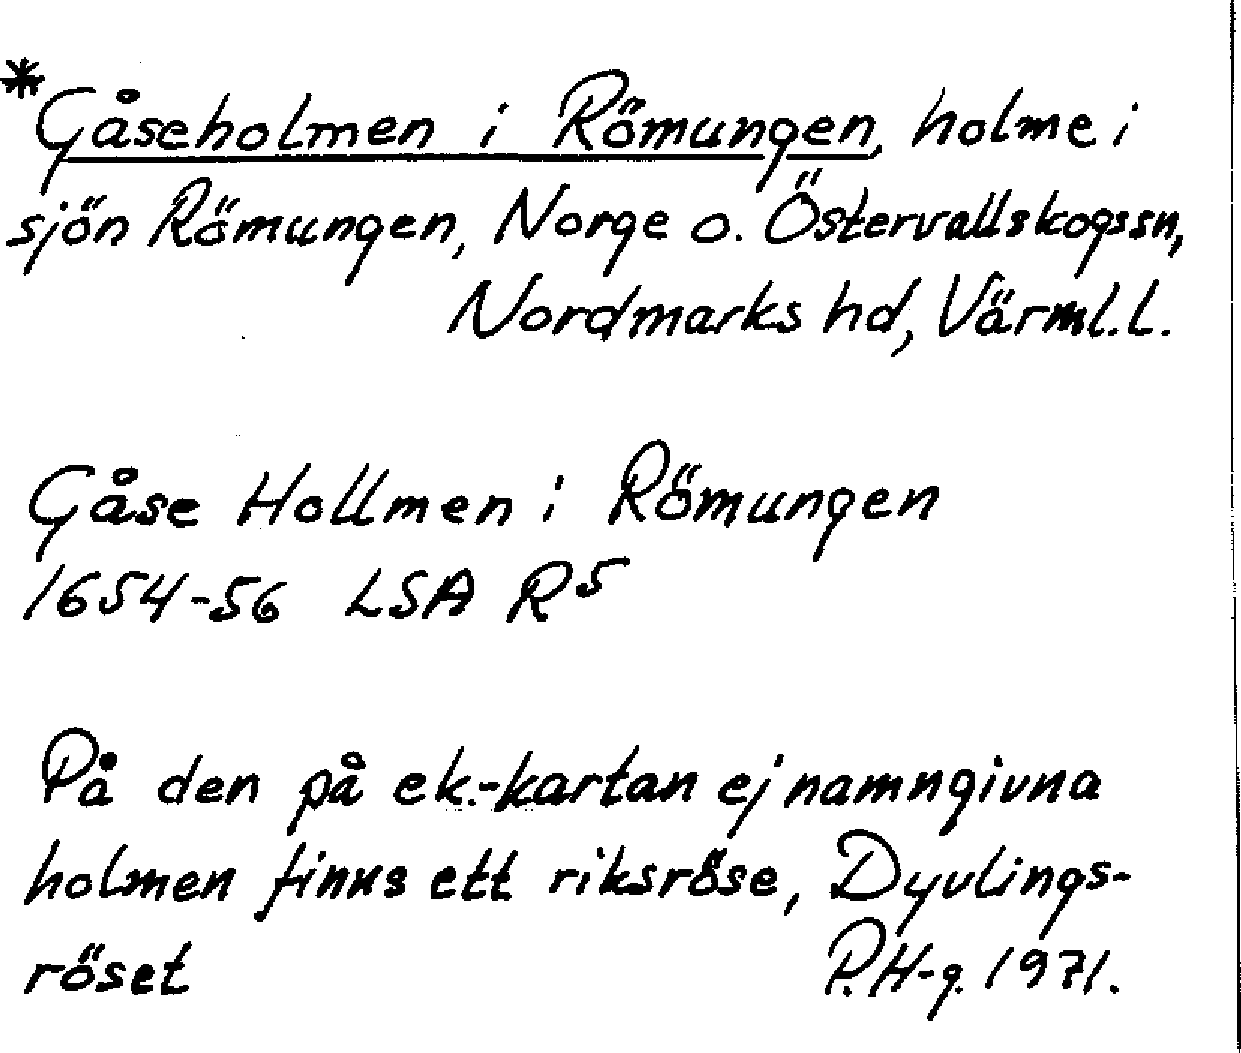 *Gåseholmen i Römungen, holme i
sjön Römungen, Norge o. Östervallskogs sn,
Nordmarks hd, Värml. l.
Gåse Hollmen i Römungen
1654-56 LSA R5
På den på ek.-kartan ej namngivna
holmen finns ett riksröse, Dyvlings-
röset P.H-g. 1971.